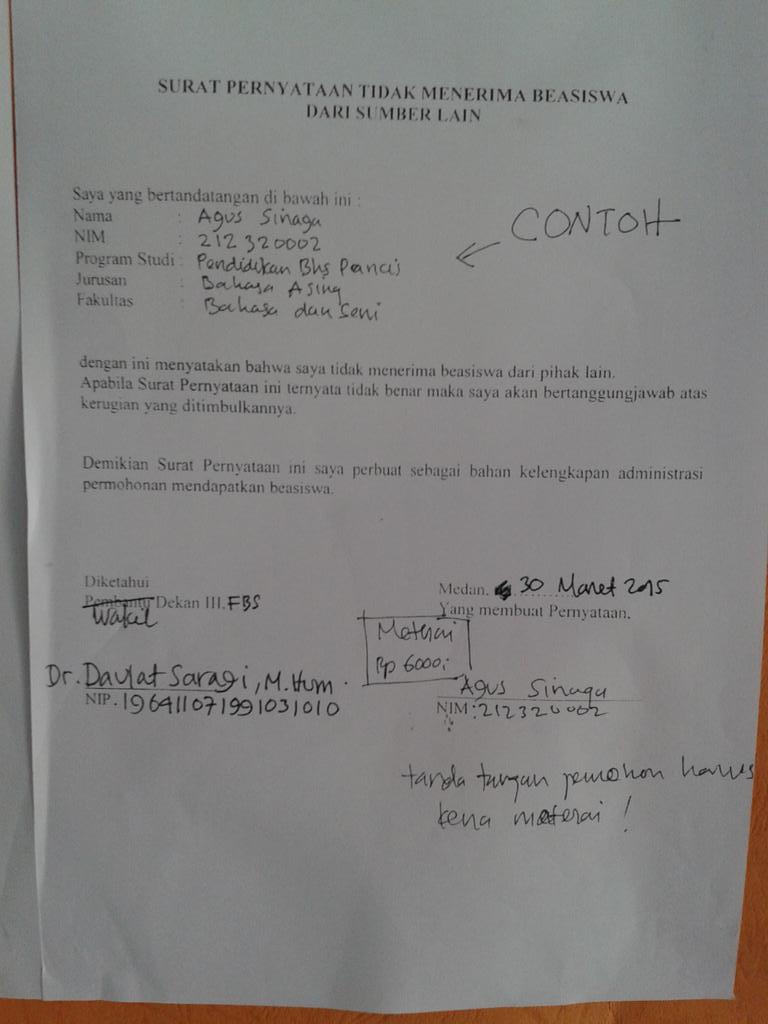 SURAT PERNYATAAN TIDAK MENERIMA BEASISWA
DARI SUMBER LAIN
Saya yang bertandatangan di bawah ini :
Nama : Agus Sinaga
NIM : 212320002
Program Studi : Pendidikan Bhs Perancis
Jurusan : Bahasa Asing
Fakultas : Bahasa dan Seni
CONTOH
dengan ini menyatakan bahwa saya tidak menerima beasiswa dari pihak lain.
Apabila Surat Pernyataan ini ternyata tidak benar maka saya akan bertanggungjawab atas
kerugian yang ditimbulkannya.
Demikian Surat Pernyataan ini saya perbuat sebagai bahan kelengkapan administrasi
permohonan mendapatkan beasiswa.
Diketahui
Pembantu Dekan III, FBS
Wakil
Dr. Daulat Saragi, M.Hum.
NIP. 196411071991031010
Medan, 30 Maret 2015
Yang membuat Pernyataan,
Materai
Rp 6000,-
Agus Sinaga
NIM : 212320002
tanda tangan pemohon harus
kena materai !